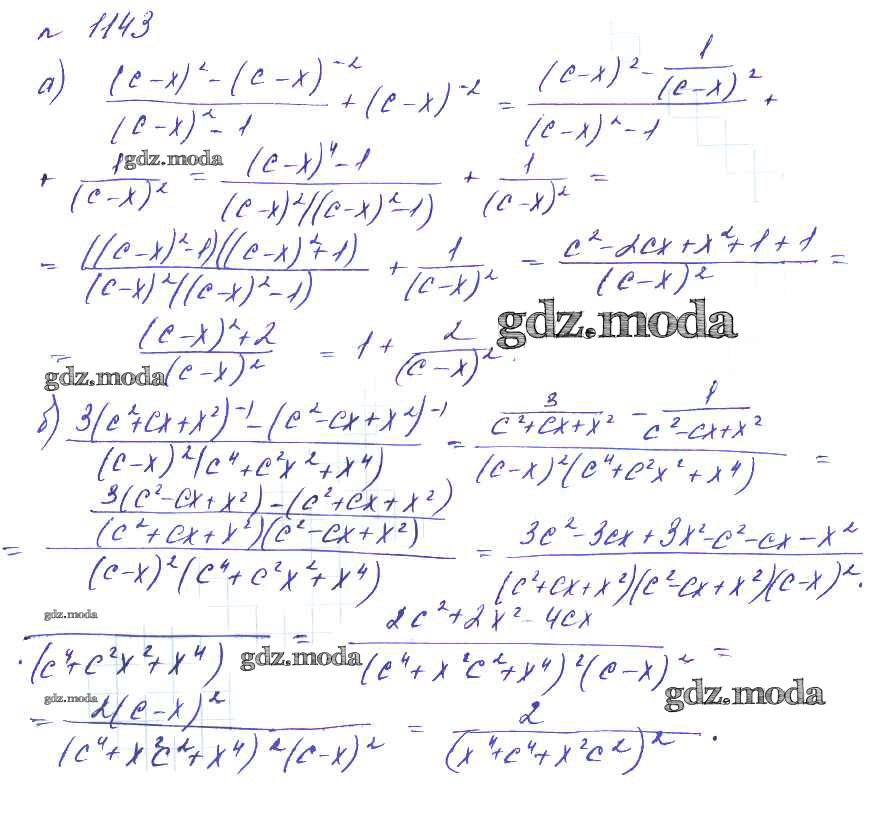 n 1143
а) ((c-x)² - (c-x)⁻²)/((c-x)² - 1) + (c-x)⁻² = ((c-x)² - 1/(c-x)²)/((c-x)² - 1) +
+ 1/(c-x)² = ((c-x)⁴ - 1)/((c-x)²((c-x)² - 1)) + 1/(c-x)² =
gdz.moda
= (((c-x)² - 1)((c-x)² + 1))/((c-x)²((c-x)² - 1)) + 1/(c-x)² = (c² - 2cx + x² + 1 + 1)/(c-x)² =
gdz.moda
= ((c-x)² + 2)/(c-x)² = 1 + 2/(c-x)².
gdz.moda
б) (3(c²+cx+x²)⁻¹ - (c²-cx+x²)⁻¹)/((c-x)²(c⁴+c²x²+x⁴)) = (3/(c²+cx+x²) - 1/(c²-cx+x²))/((c-x)²(c⁴+c²x²+x⁴)) =
= ((3(c²-cx+x²) - (c²+cx+x²))/((c²+cx+x²)(c²-cx+x²)))/((c-x)²(c⁴+c²x²+x⁴)) = (3c²-3cx+3x²-c²-cx-x²)/((c²+cx+x²)(c²-cx+x²)(c-x)².
gdz.moda
.(c⁴+c²x²+x⁴) = (2c²+2x²-4cx)/((c⁴+x²c²+x⁴)²(c-x)²) =
gdz.moda
gdz.moda
gdz.moda
= 2(c-x)²/((c⁴+x²c²+x⁴)²(c-x)²) = 2/(x⁴+c⁴+x²c²)².